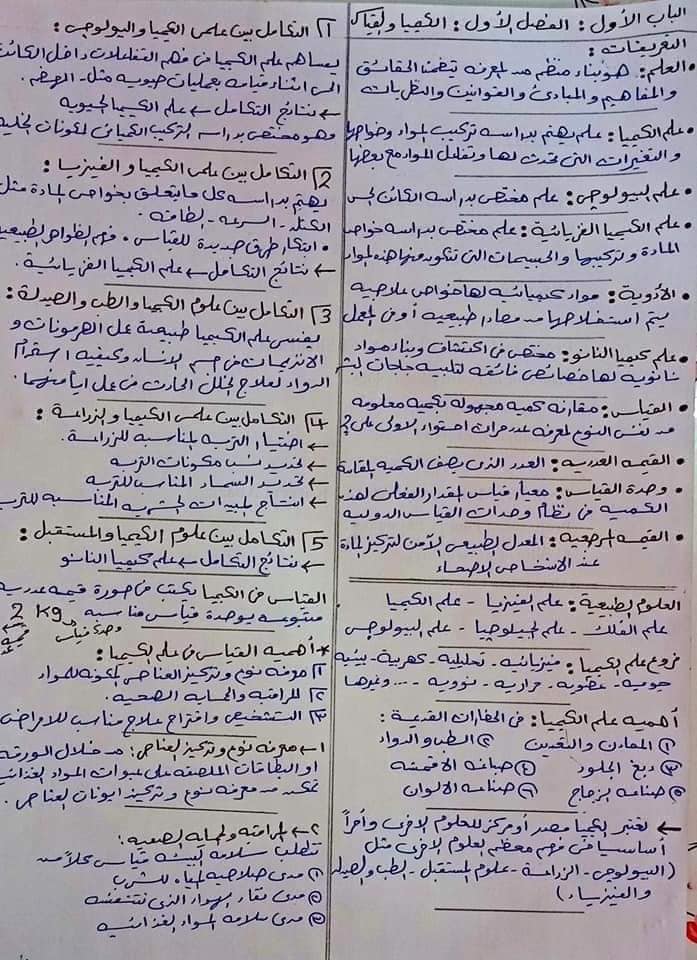 الباب الأول : الفصل الأول : الكيمياء والقياس
التعريفات :
• العلم : هو بناء منظم من المعرفة يتضمن الحقائق
والمفاهيم والمبادئ والقوانين والنظريات
• علم الكيمياء : علم يهتم بدراسة تركيب المواد وخواصها
والتغيرات التى تحدث لها وتفاعل المواد مع بعضها
• علم البيولوجى : علم مختص بدراسة الكائن الحى
• علم الكيمياء الفزيائية : علم مختص بدراسة خواص
المادة وتركيبها والجسيمات التى تتكون منها هذه المواد
• الأدوية : مواد كيميائية لها خواص علاجية
يتم استخلاصها من مصادر طبيعيه أو فى المعمل
• علم كيمياء النانو : مختص فى اكتشاف وبناء مواد
نانوية لها خصائص فائقه لتلبية حاجات البشر
• القياس : مقارنه كميه مجهوله بكميه معلومه
من نفس النوع لمعرفه عدد مرات احتواء الاولى على
• القيمه العدديه : العدد الذى يصف الكميه المقاسة
• وحدة القياس : معيار قياس لمقدار الفعلى لهذه
الكميه فى نظام وحدات القياس الدوليه
• القيمه المرجعيه : المعدل الطبيعى الآمن لتركيز المادة
عند الاشخاص الاصحاء
العلوم الطبيعية : علم الفيزيا - علم الكيميا
علم الفلك - علم الجيولوجيا - علم البيولوجى
فروع علم الكيميا : فيزيائيه - تحليلية - كهربية - بيئيه
حيويه - عضويه - حراريه - نوويه - ... وغيرها
أهميه علم الكيميا : فى الحضارات القديمة :
١ المعادن والتعدين ٢ الطب والدواء
٣ دبغ الجلود ٤ صباغه الاقمشه
٥ صناعه الزجاج ٦ صناعه الالوان
← تعتبر الكيميا مصدر أو مركز للعلوم الاخرى وأمراً
أساسيا فى فهم معظم العلوم الاخرى مثل
(البيولوجى - الزراعة - علوم المستقبل - الطب والصيدله
والفيزياء)
١ التكامل بين علمى الكيميا والبيولوجى :
يساهم علم الكيميا فى فهم التفاعلات داخل الكائن
الحى اثناء قيامه بعمليات حيويه مثل - الهضم .
← نتائج التكامل ← علم الكيميا الحيويه
وهو مختص بدراسه التركيب الكيميائى لمكونات الخليه
2 التكامل بين علمى الكيميا والفيزيا :
يهتم بدراسه كل ما يتعلق بخواص المادة مثل
الكتله - السرعه - الطاقه .
• ابتكار طرق جديدة للقياس . فهم الظواهر الطبيعيه
← نتائج التكامل ← علم الكيميا الفزيائية .
3 التكامل بين علوم الكيميا والطب والصيدلة :
يفسر علم الكيميا طبيعة عمل الهرمونات و
الانزيمات فى جسم الإنسان وكيفيه استخدام
الدواء لعلاج الخلل الحادث فى عمل أياً منهما .
4 التكامل بين علمى الكيميا والزراعة :
← اختيار التربه المناسبه للزراعة .
← تحديد نسب مكونات التربه
← تحديد السماد المناسب للتربه
← انتاج المبيدات الحشريه المناسبه للتربه
5 التكامل بين علوم الكيميا والمستقبل :
← نتائج التكامل ← علم كيميا النانو
القياس فى الكيميا يكتب فى صورة قيمه عدديه
متبوعه بوحدة قياس مناسبه 2 Kg
وحدة قياس
قيمه
* أهميه القياس فى علم الكيميا :
١ معرفه نوع وتركيز العناصر المكونه للمواد
٢ المراقبه والحمايه الصحيه .
٣ التشخيص واقتراح علاج مناسب للامراض
١- معرفه نوع وتركيز العناصر : من خلال الورقه
او البطاقات الملصقه على عبوات المواد الغذائيه
نتمكن من معرفه نوع وتركيز ايونات العناصر .
٢- المراقبه والحمايه الصحيه :
تتطلب سلامه البيئه قياس كلاً من
١ مدى صلاحيه المياه للشرب
٢ مدى نقاء الهواء الذى نتنفسه
٣ مدى سلامه المواد الغذائيه